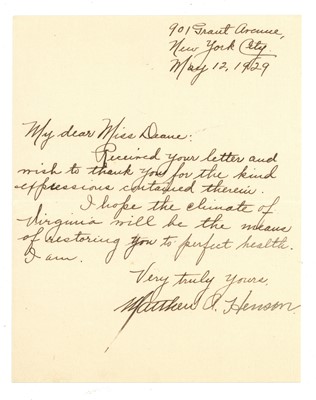 901 Grant Avenue,
New York City.
May 12, 1929
My dear Miss Deane:
Received your letter and
wish to thank you for the kind
expressions contained therein.
I hope the climate of
Virginia will be the means
of restoring you to perfect health.
I am.
Very truly yours.
Matthew A. Henson.